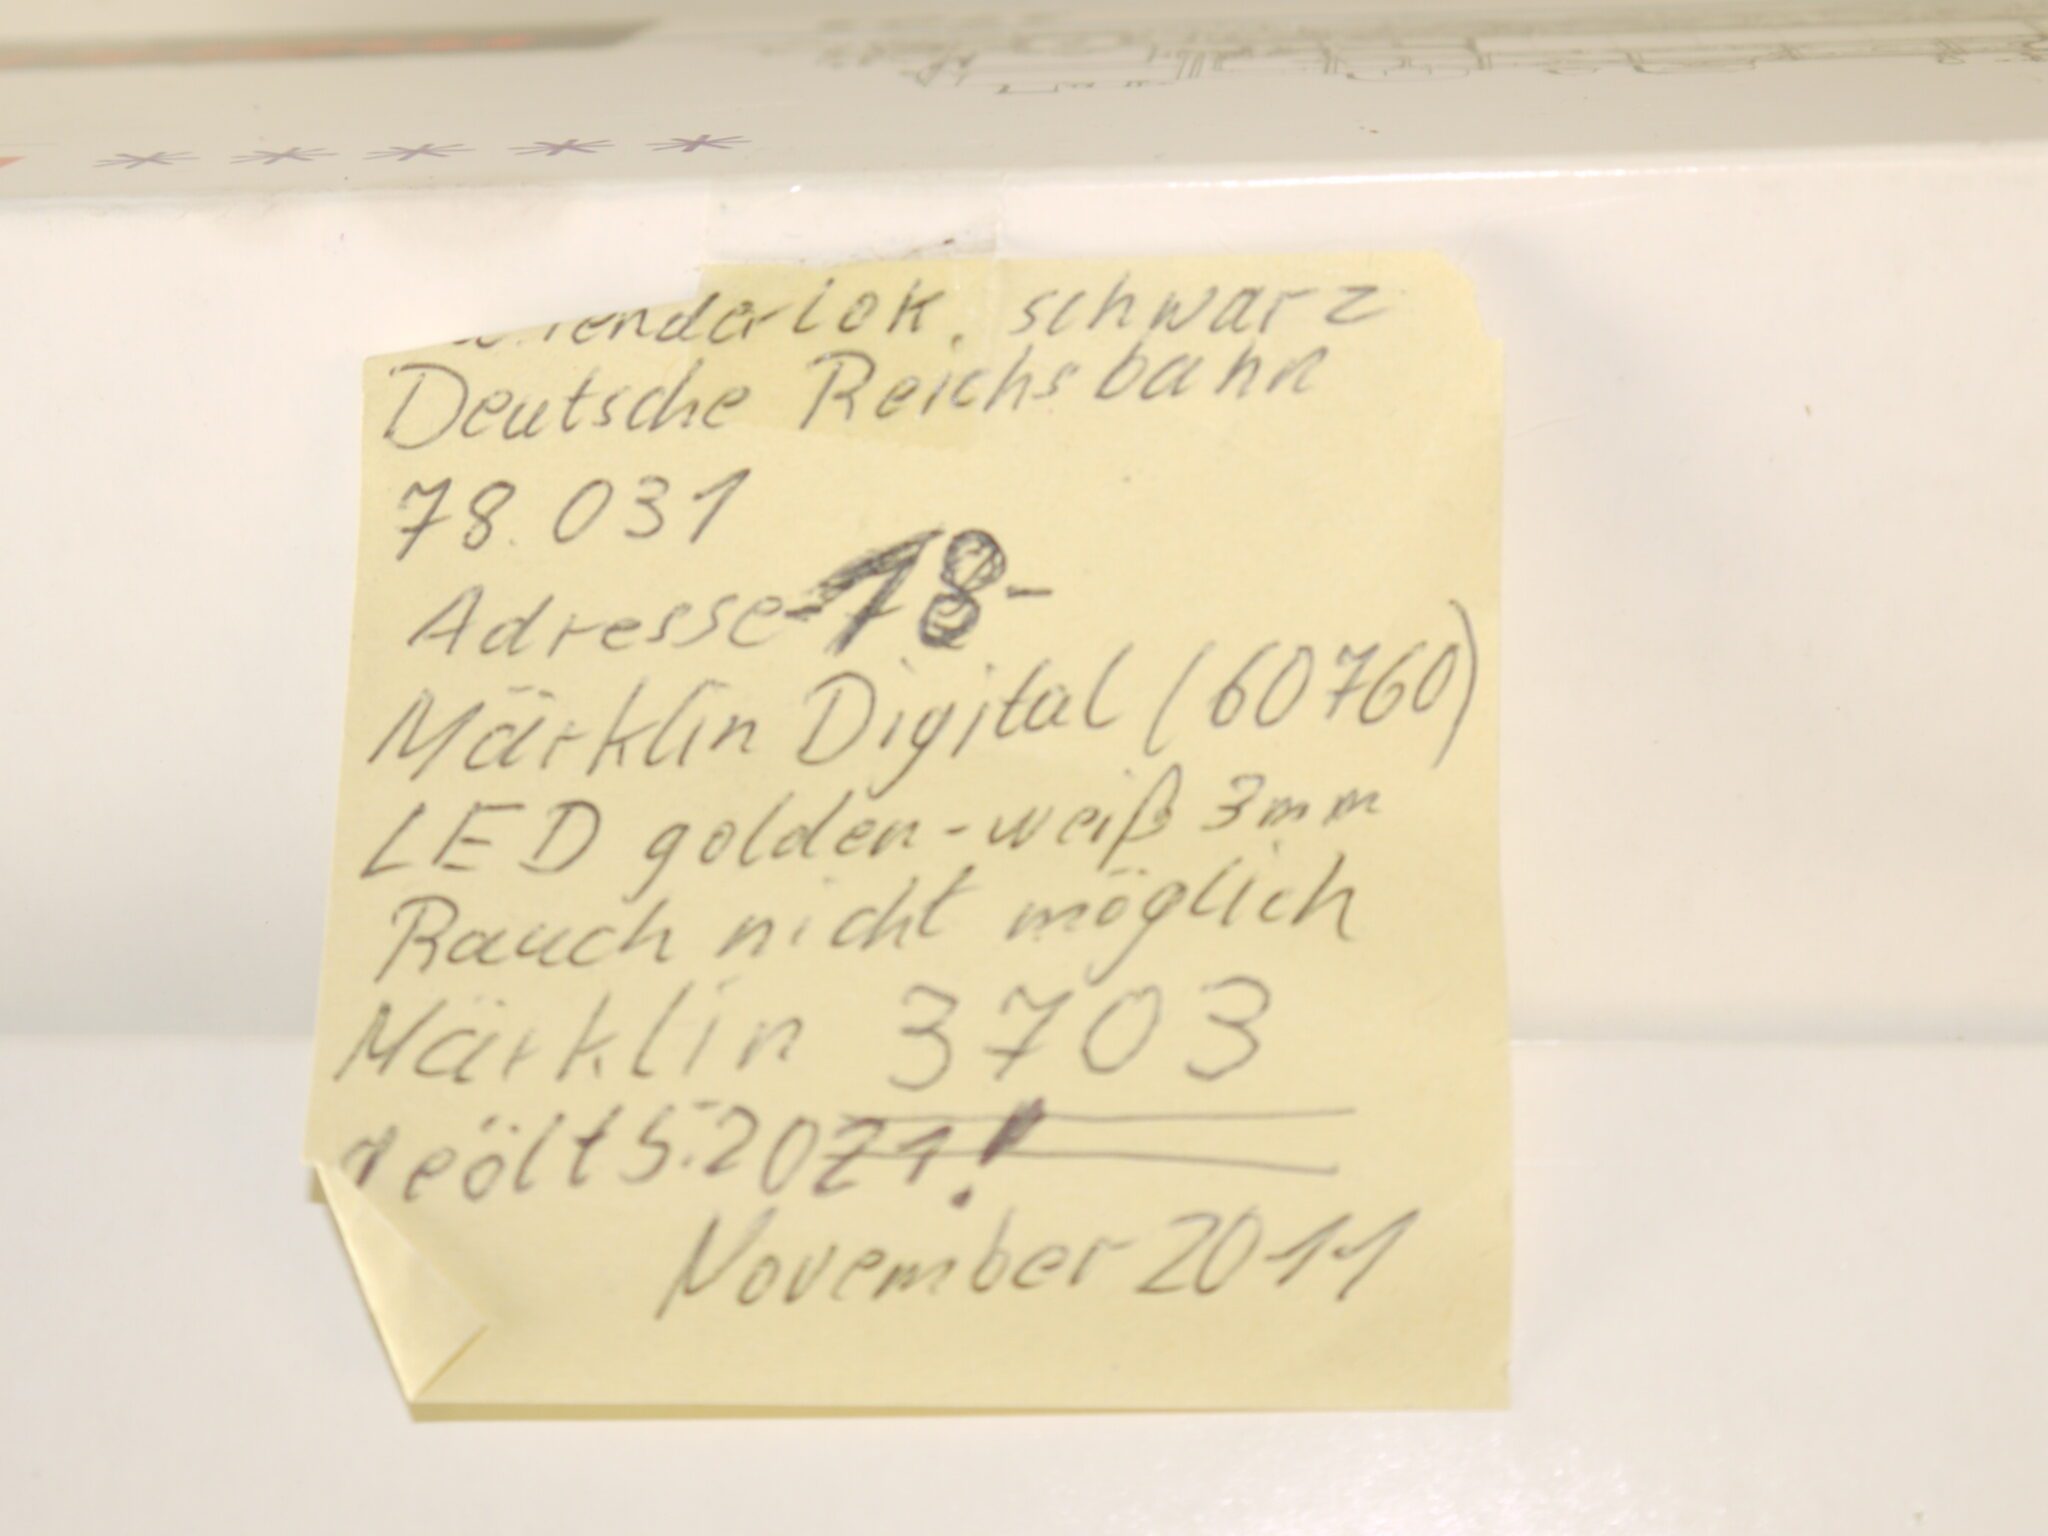 tenderlok, schwarz
Deutsche Reichsbahn
78.031
Adresse-78-
Märklin Digital (60760)
LED golden-weiß 3mm
Rauch nicht möglich
Märklin 3703
geölt 5.2021!
November 2011